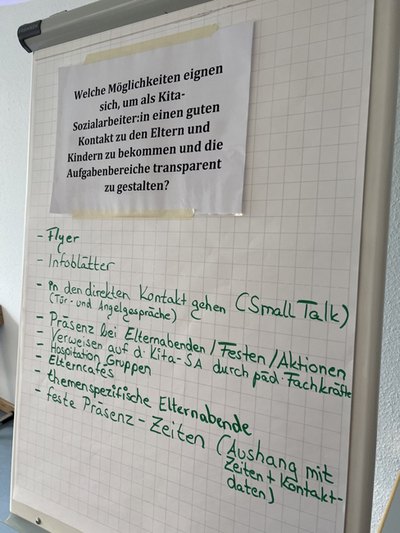 Welche Möglichkeiten eignen
sich, um als Kita-
Sozialarbeiter:in einen guten
Kontakt zu den Eltern und
Kindern zu bekommen und die
Aufgabenbereiche transparent
zu gestalten?
- Flyer
- Infoblätter
- in den direkten Kontakt gehen (Small Talk)
(Tür- und Angelgespräche)
- Präsenz bei Elternabenden / Festen / Aktionen
- Verweisen auf d. Kita-SA durch päd. Fachkräfte
- Hospitation Gruppen
- Elterncafés
- themenspezifische Elternabende
- feste Präsenz-Zeiten (Aushang mit
Zeiten + Kontakt-
daten)